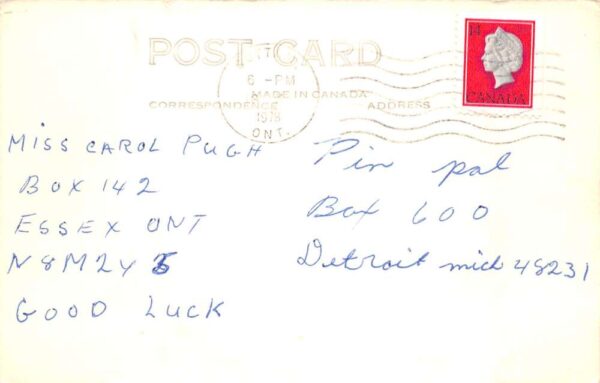 POST CARD
6 -PM
MADE IN CANADA
CORRESPONDENCE
ADDRESS
1978
ONT.
14
CANADA
MISS CAROL PUGH
BOX 142
ESSEX ONT
N8M2Y5
GOOD LUCK
Pin pal
Box 600
Detroit mich 48231